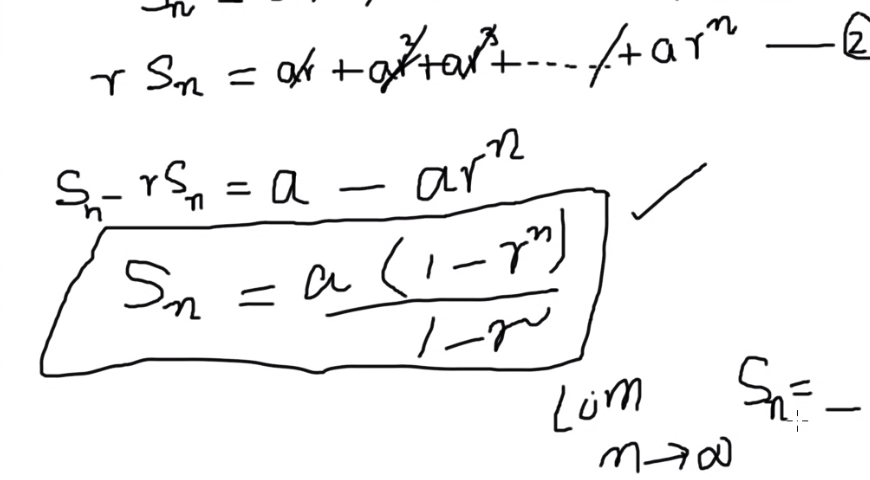 Sₙ =
r Sₙ = ar + ar² + ar³ + ----- + arⁿ — ②
Sₙ - rSₙ = a - arⁿ
Sₙ = a(1 - rⁿ) / 1 - r
Lim n→∞ Sₙ = _